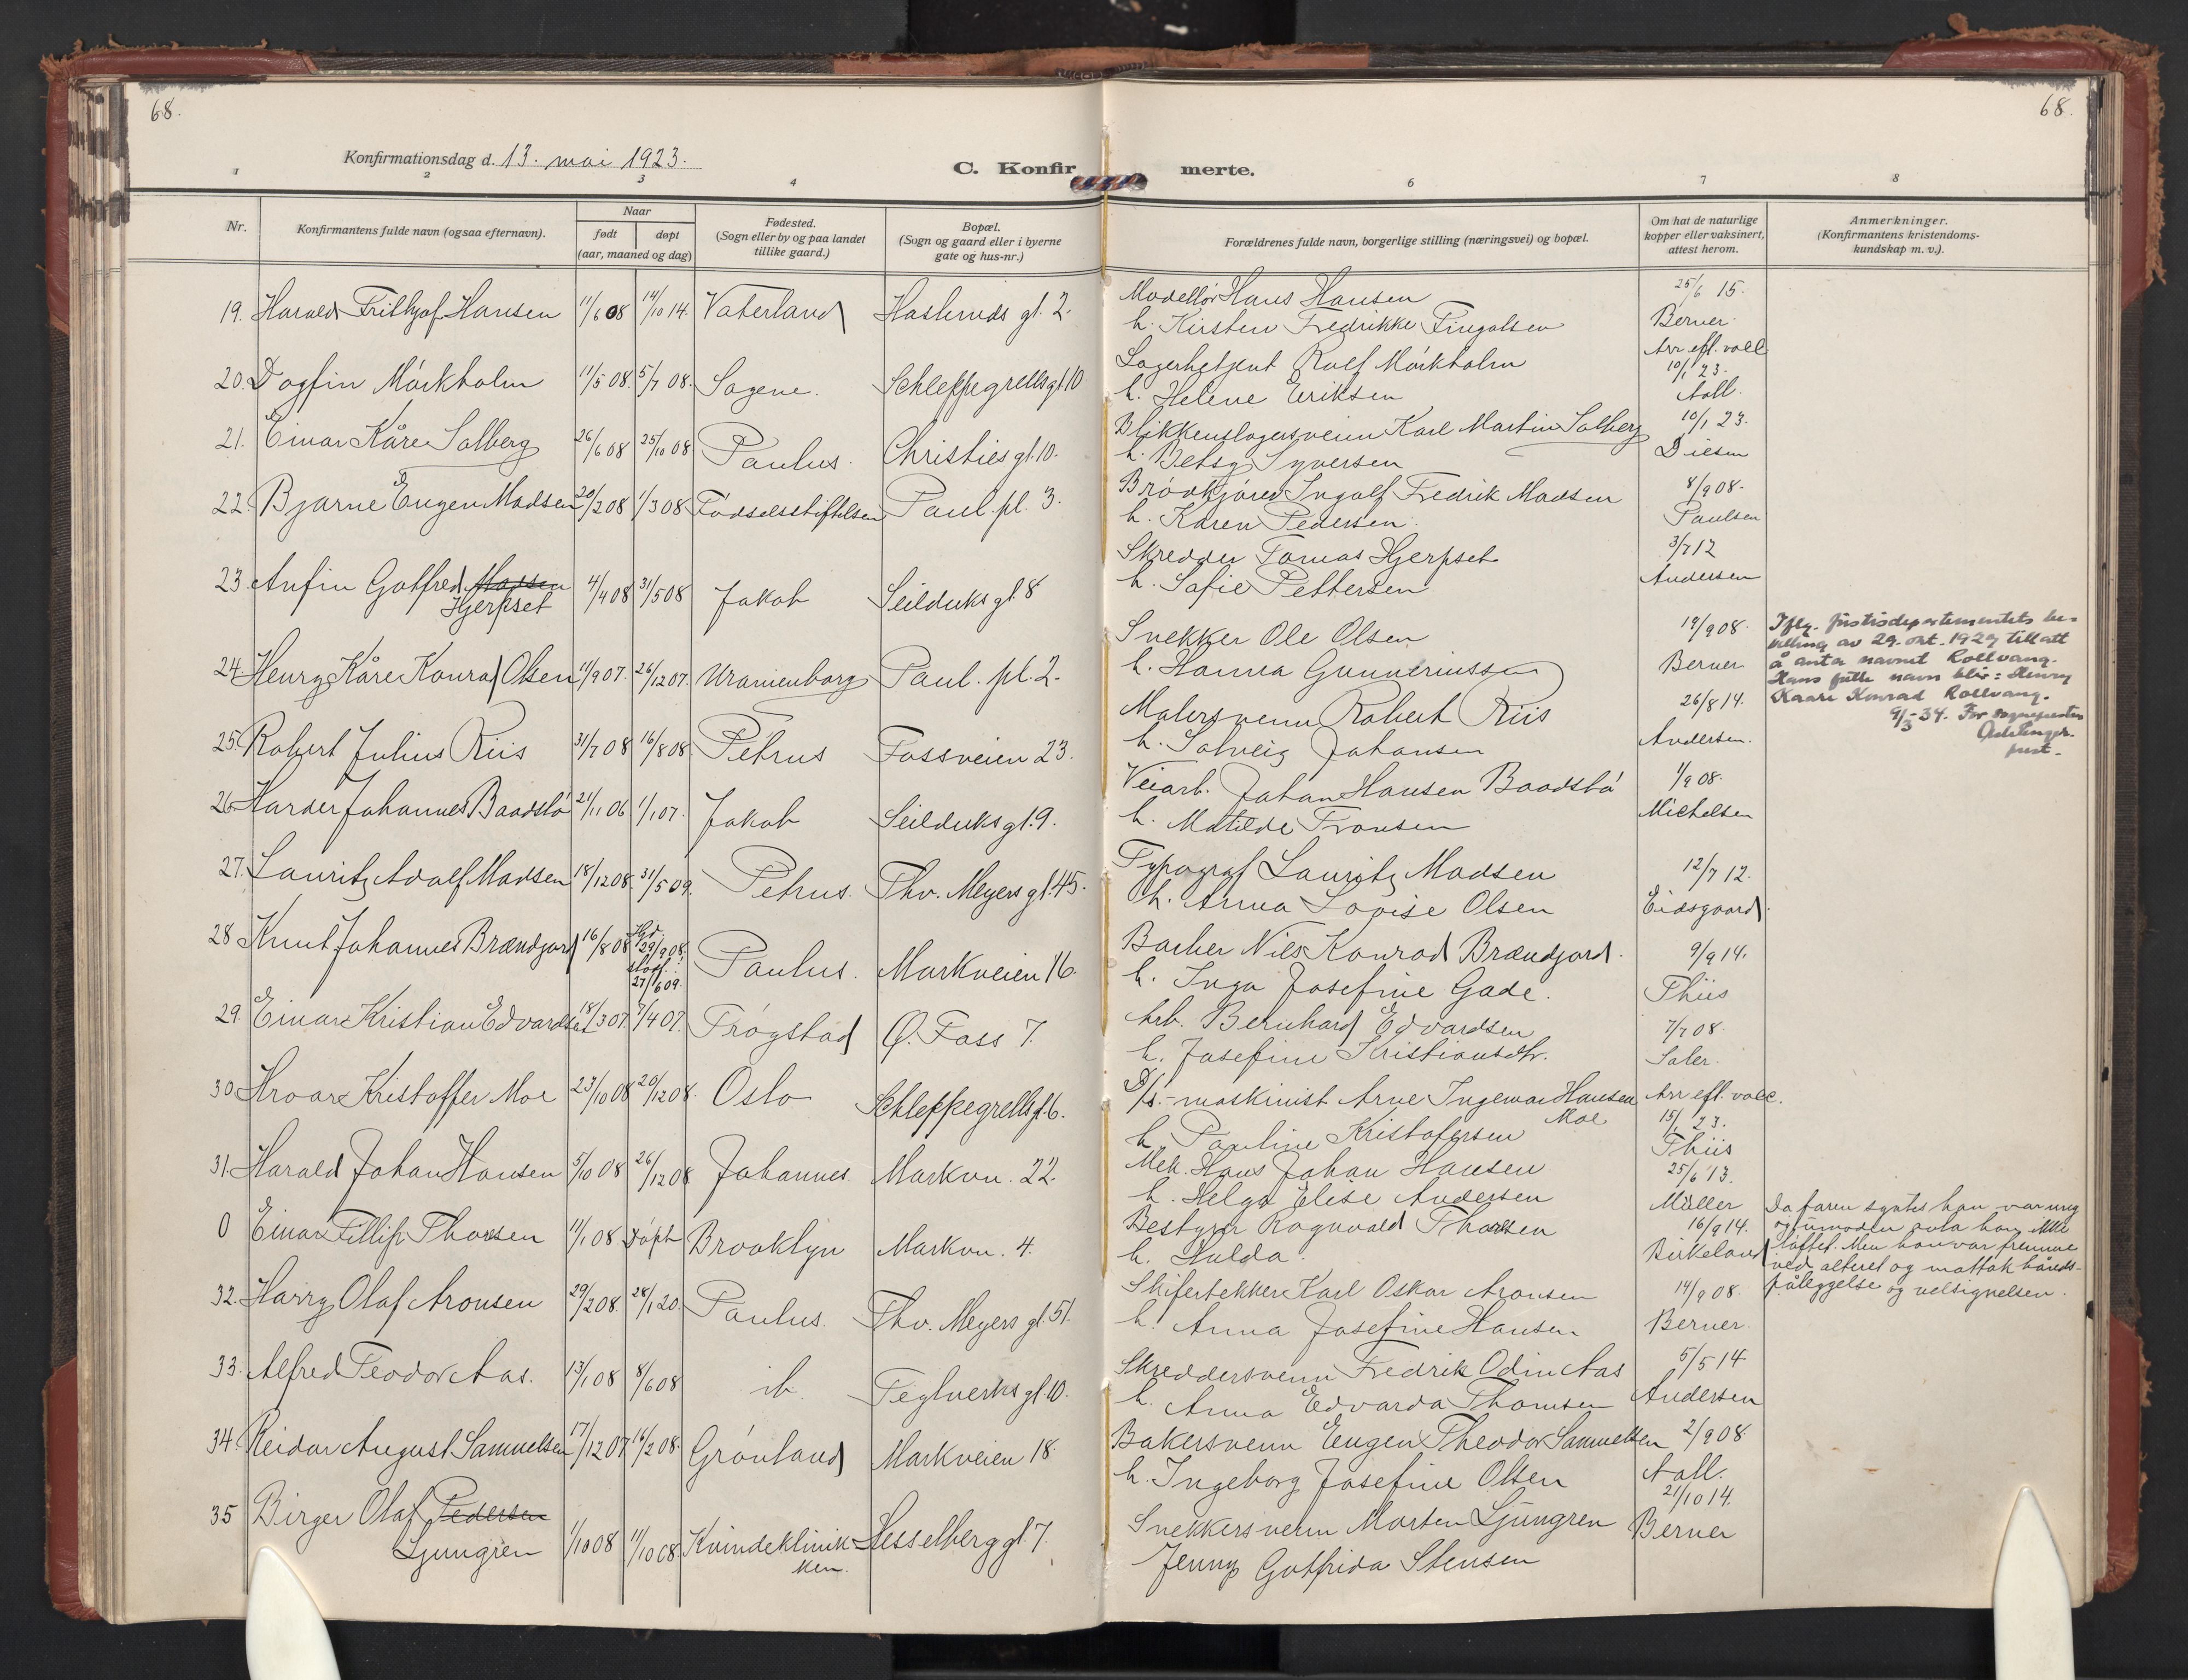 68.
68.
Konfirmationsdag d. 13. mai 1923.
C. Konfir merte.
1 2 3 4 6 7 8
Nr.
Konfirmantens fulde navn (ogsaa efternavn).
Naar
født
døpt
(aar, maaned og dag)
Fødested.
(Sogn eller by og paa landet
tillike gaard.)
Bopæl.
(Sogn og gaard eller i byerne
gate og hus-nr.)
Forældrenes fulde navn, borgerlige stilling (næringsvei) og bopæl.
Om hat de naturlige
kopper eller vaksinert,
attest herom.
Anmerkninger.
(Konfirmantens kristendoms-
kundskap m. v.).
19. Harald Frithjof Hansen 11/6 08 14/10 14. Vaterland Haslunds gt. 2.
Modellør Hans Hansen 25/6 15.
h. Kirsten Fredrikke Fingalsen Berner
20. Dagfin Mörkholm 11/5 08. 5/7 08. Sagene. Schleppegrellsgt 10
Lagerbetjent Rolf Mörkholm Arr eft. vacc
h. Helene Eriksen 10/1 23.
Aall.
21. Einar Kåre Solberg 26/6 08 25/10 08 Paulus. Christies gt. 10.
Blikkenslagersvenn Karl Martin Solberg 10/1 23.
h. Betsy Syversen Diesen
22. Bjarne Eugen Madsen 20/2 08 1/3 08 Födselsstiftelsen Paul. pl. 3.
Brödkjörer Ingolf Fredrik Madsen 8/9 08.
h. Karen Pedersen. Paulsen
23. Anfin Gotfred Madsen
Hjerpset 4/4 08 31/5 08 Jakob Seilduks gt. 8
Skredder Tomas Hjerpset 3/7 12
h. Sofie Pettersen Andersen
24. Henry Kåre Konrad Olsen 11/9 07. 26/12 07. Uranienborg Paul. pl. 2.
Snekker Ole Olsen 19/9 08.
h. Hanna Gunneriussen Berner
Iflg. justisdepartementets be-
villing av 29. okt. 1929 till att
å anta navnet Rollvang.
Hans fulle navn blir: Henry
Kaare Konrad Rollvang.
9/3-34. For sognepresten
25. Robert Julius Riis 31/7 08 16/8 08. Petrus Fossveien 23.
Malersvenn Robert Riis 26/8 14.
h. Solveig Johansen Andersen.
26. Harder Johannes Baadstö 21/11 06 1/1 07. Jakob Seilduksgt. 9.
Veiarb. Johan Hansen Baadstö 1/9 08.
h. Matilde Fransen Michelsen
27. Lauritz Adolf Madsen 18/12 08. 31/5 09. Petrus. Thv. Meyers gt. 45.
Typograf Lauritz Madsen 12/7 12.
h. Anna Lovise Olsen Eidsgaard.
28 Knut Johannes Brændjord 16/8 08 Hjd. 29/9 08.
27/6 09. Paulus. Markveien 16.
Barber Nils Konrad Brændjord. 9/9 14.
h. Inga Josefine Gade. Thiis
29. Einar Kristian Edvardsen 18/3 07. 7/4 07. Trøgstad Ø. Foss 7.
Arb. Bernhard Edvardsen 7/7 08.
h. Josefine Kristiansdtr. Saler.
30. Hroar Kristoffer Moe 23/10 08 20/12 08. Oslo Schleppegrellsgt. 6.
D/s.-maskinist Arne Ingemar Hansen Arr eft. vacc.
Moe 15/1 23.
h. Pauline Kristofersen Thiis
31. Harald Johan Hansen 5/10 08 26/12 08 Johannes. Markvn. 22.
Mek. Hans Johan Hansen 25/6 13.
h. Helga Elise Andersen Müller
0 Einar Fillip Thorsen 11/1 08 Döpt Brooklyn Markvn. 4.
Bestyrer Ragnvald Thorsen 16/9 14.
h. Hulda. Birkeland
Da faren syntes han var ung
og umoden avla han ikke
löftet. Men han var fremme
ved alteret og mottok hånds-
påleggelse og velsignelsen.
32. Harry Olaf Aronsen 29/2 08. 28/1 20. Paulus. Thv. Meyers gt. 51.
Skifertekker Karl Oskar Aronsen 14/9 08.
h. Anna Josefine Hansen Berner.
33. Alfred Teodor Aas. 13/1 08 8/6 08 ib. Teglverks gt. 10.
Skreddersvenn Fredrik Odin Aas 5/5 14
h. Anna Edvarda Thomsen Andersen
34. Reidar August Samuelsen 17/12 07 16/2 08. Grönland Markveien 18.
Bakersvenn Eugen Theodor Samuelsen 2/9 08
h. Ingeborg Josefine Olsen Aall.
35 Birger Olaf Pedersen
Ljungren 1/10 08 11/10 08 Kvindeklinik-
ken. Hesselberg gt. 7.
21/10 14.
Snekkersvenn Morten Ljungren Berner
Jenny Gotfrida Stensen